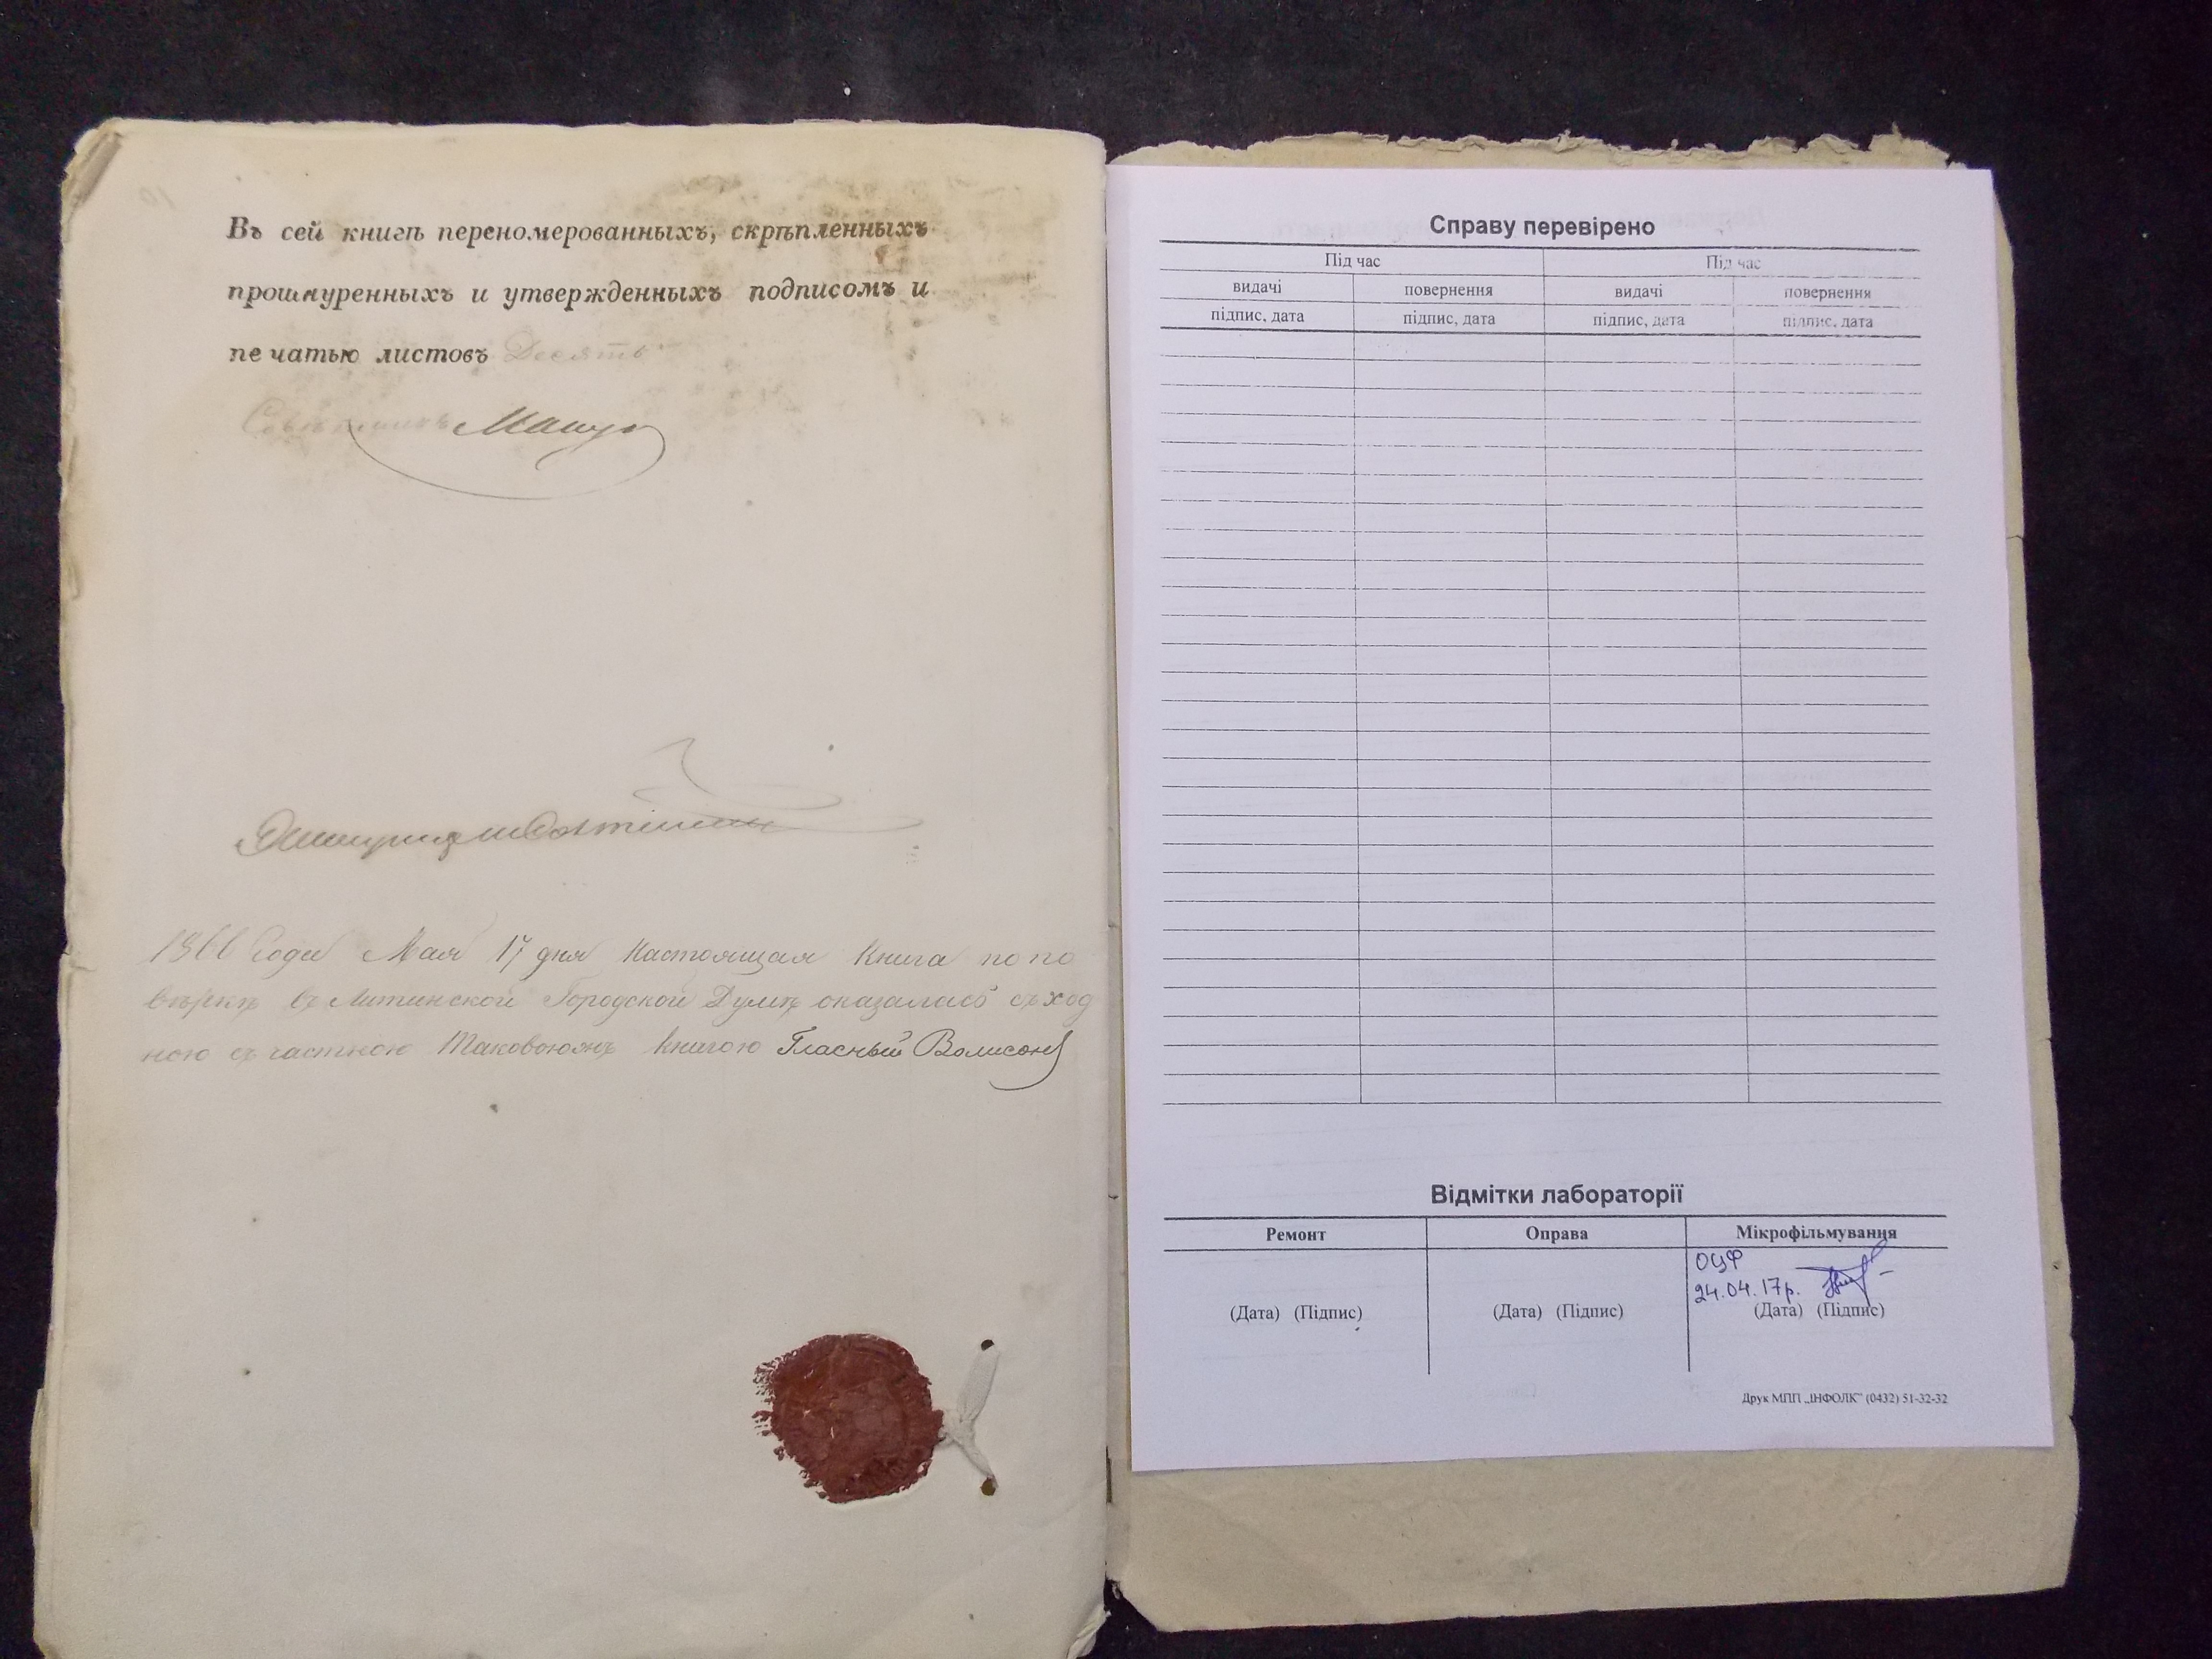 Въ сей книгѣ переномерованныхъ, скрѣпленныхъ
прошнуренныхъ и утвержденныхъ подписомъ и
печатью листовъ Десять
Года Мая 17 дня Настоящая Книга по по
вѣркѣ въ Литинской Городской Думѣ оказалась сход
ною съ частною таковоюжъ книгою Гласный
Справу перевірено
Під час Під час
видачі повернення видачі повернення
підпис, дата підпис, дата підпис, дата підпис, дата
Відмітки лабораторії
Ремонт Оправа Мікрофільмування
ОЦФ
24.04.17р.
(Дата) (Підпис) (Дата) (Підпис) (Дата) (Підпис)
Друк МПП „ІНФОЛК” (0432) 51-32-32